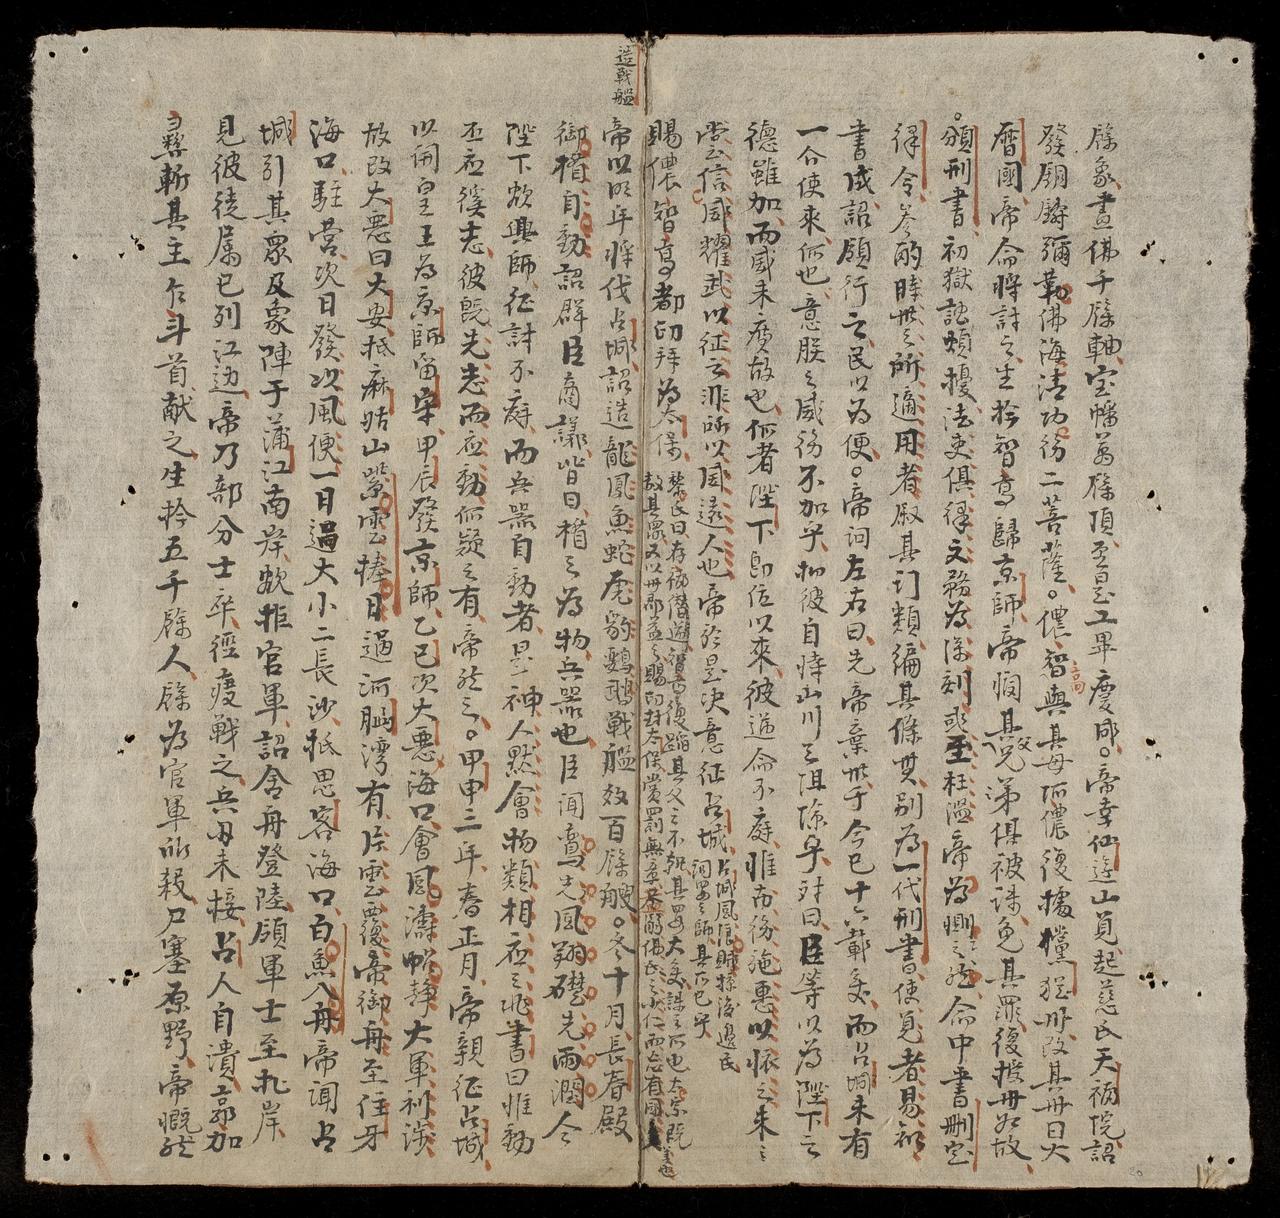 餘象畫佛千餘軸宝幡萬餘頂至是工畢慶成帝幸仙遊山覓起慈氏天福院詔
發銅鑄彌勒佛海清功德二菩薩儂智與其母阿儂復據儻猶州改其州曰大
高
曆國帝命將討之生擒智高歸京師帝憫其父兄弟俱被誅免其罪復授州如故
頒刑書初獄訟煩擾法吏俱律文務為深刻或至枉濫帝為惻之然命中書刪定
律令參酌時世之所適用者叙其門類編其條貫別為一代刑書使覓者易知
書成詔頒行之民以為便帝詞左右曰先帝棄世于今已十六載矣而占城未有
一介使來何也意朕之威德不加乎抑彼自恃山川之阻險乎對曰臣等以為陛下之
德雖加而威未廣故也何者陛下即位以來彼逆命不庭惟布德施惠以懷之未之
嘗信威耀武以征之非所以威遠人也帝於是決意征占城
占城風浪
賜儂智高都印拜為太保
帝以明年將伐占城詔造龍鳳魚蛇虎豹鸚鵡戰艦數百餘艘冬十月長春殿
御楷自動詔群臣商議皆曰楷之為物兵器也臣聞鸞先風翔礎先雨潤今
陛下欲興師征討不庭而兵器自動者是神人默會物類相應之兆書曰惟動
丕應徯志彼既先志而應動何疑之有帝然之甲申三年春正月帝親征占城
以開皇王為京師留守甲辰發京師乙巳次大惡海口會風濤帖靜大軍利涉
故改大惡曰大安抵麻姑山紫雲捧日過河腦灣有片雲覆帝御舟至住牙
海口駐營次日發次風便一日過大小二長沙抵思客海口白魚入舟帝聞占
城引其眾及象陣于蒲江南岸欲拒官軍詔舍舟登陸領軍士至北岸
見彼徒属已列江边帝乃部分士卒徑渡戰之兵刃未接占人自潰郭加
彝斬其主乍斗首献之生擒五千餘人餘為官軍所殺尸塞原野帝慨然
造戰艦